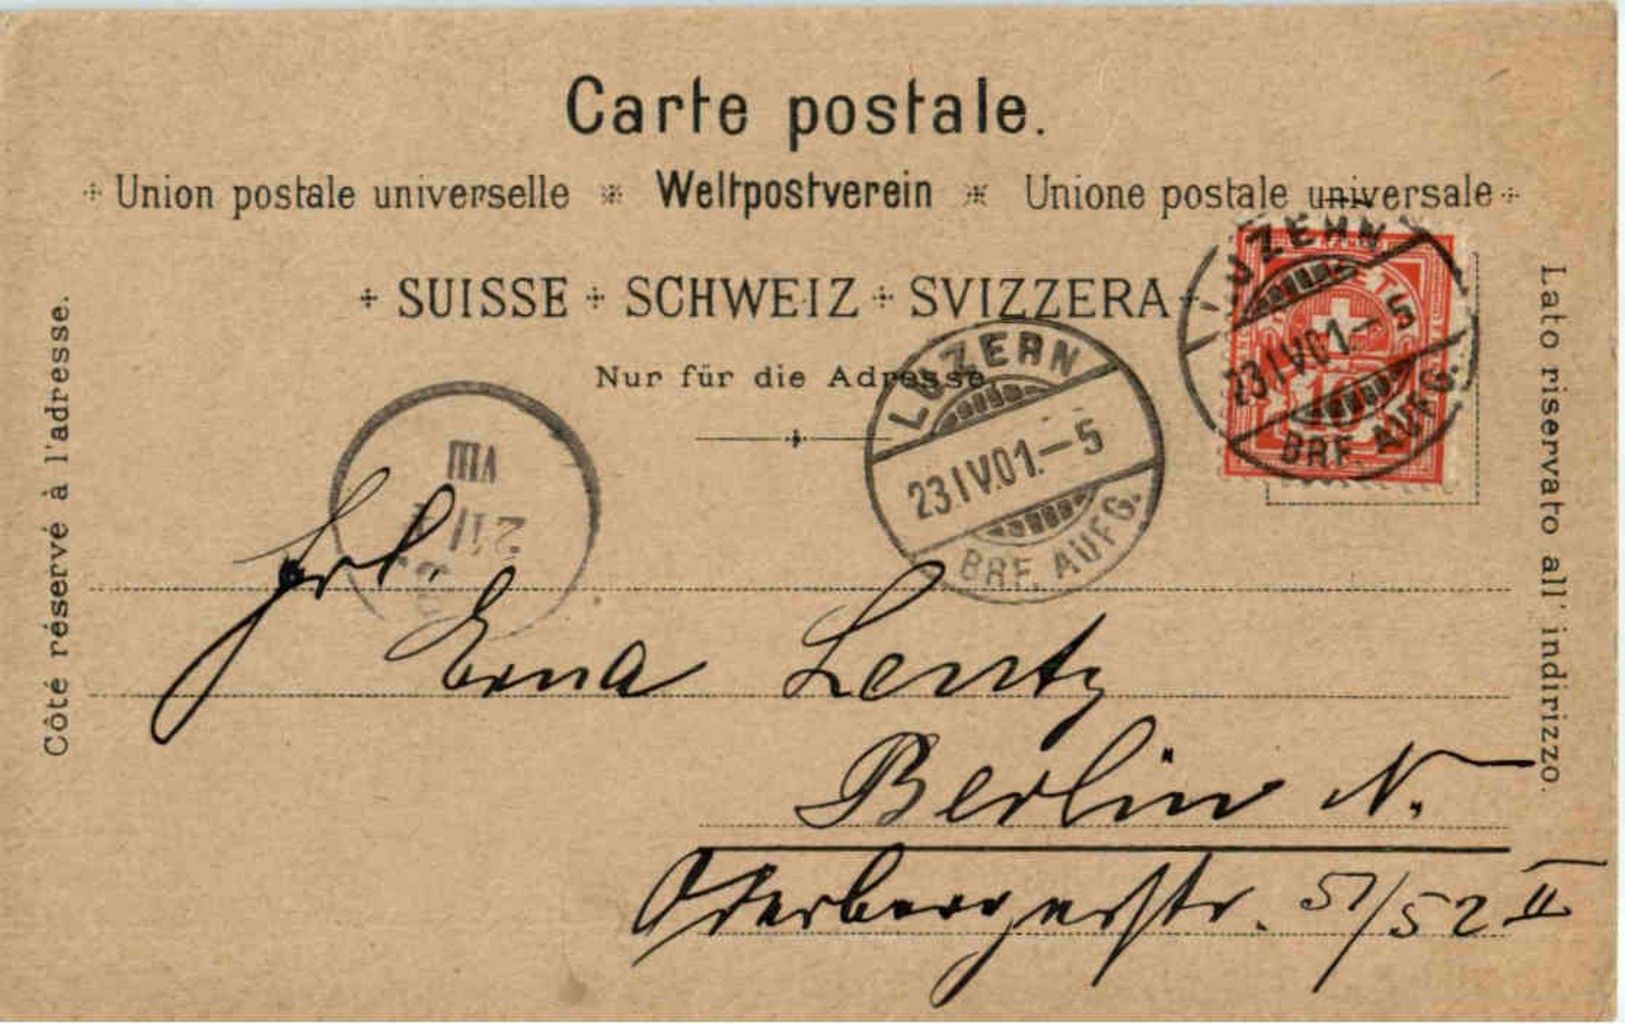 Carte postale.
Union postale universelle Weltpostverein Unione postale universale
SUISSE SCHWEIZ SVIZZERA
Nur für die Adresse
Côté réservé à l'adresse.
Lato riservato all' indirizzo.
LUZERN
23.IV.01.-5
BRF. AUFG.
LUZERN
23.IV.01.-5
BRF. AUFG.
10
VIII
Frl.
Erna Lentz
Berlin N.
Oderbergerstr. 51/52 II